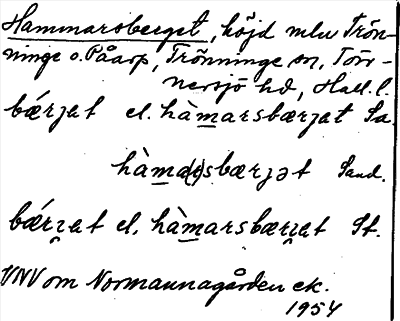 Hammarsberget, höjd mlu Trön-
ninge o. Påarp, Trönninge sn, Tönn-
nersjö hd, Hall. l.
bǽrjat el. hàmarsbærjat Sa.
hàma(r)sbærjət Sand.
bǽrjat el. hàmarsbærjat St.
VNV om Normannagården ek.
1954